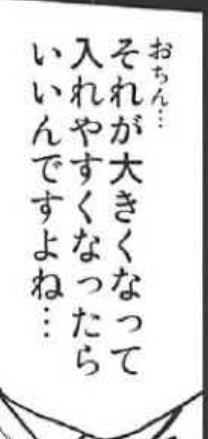 おちん…
それが大きくなって
入れやすくなったら
いいんですよね…